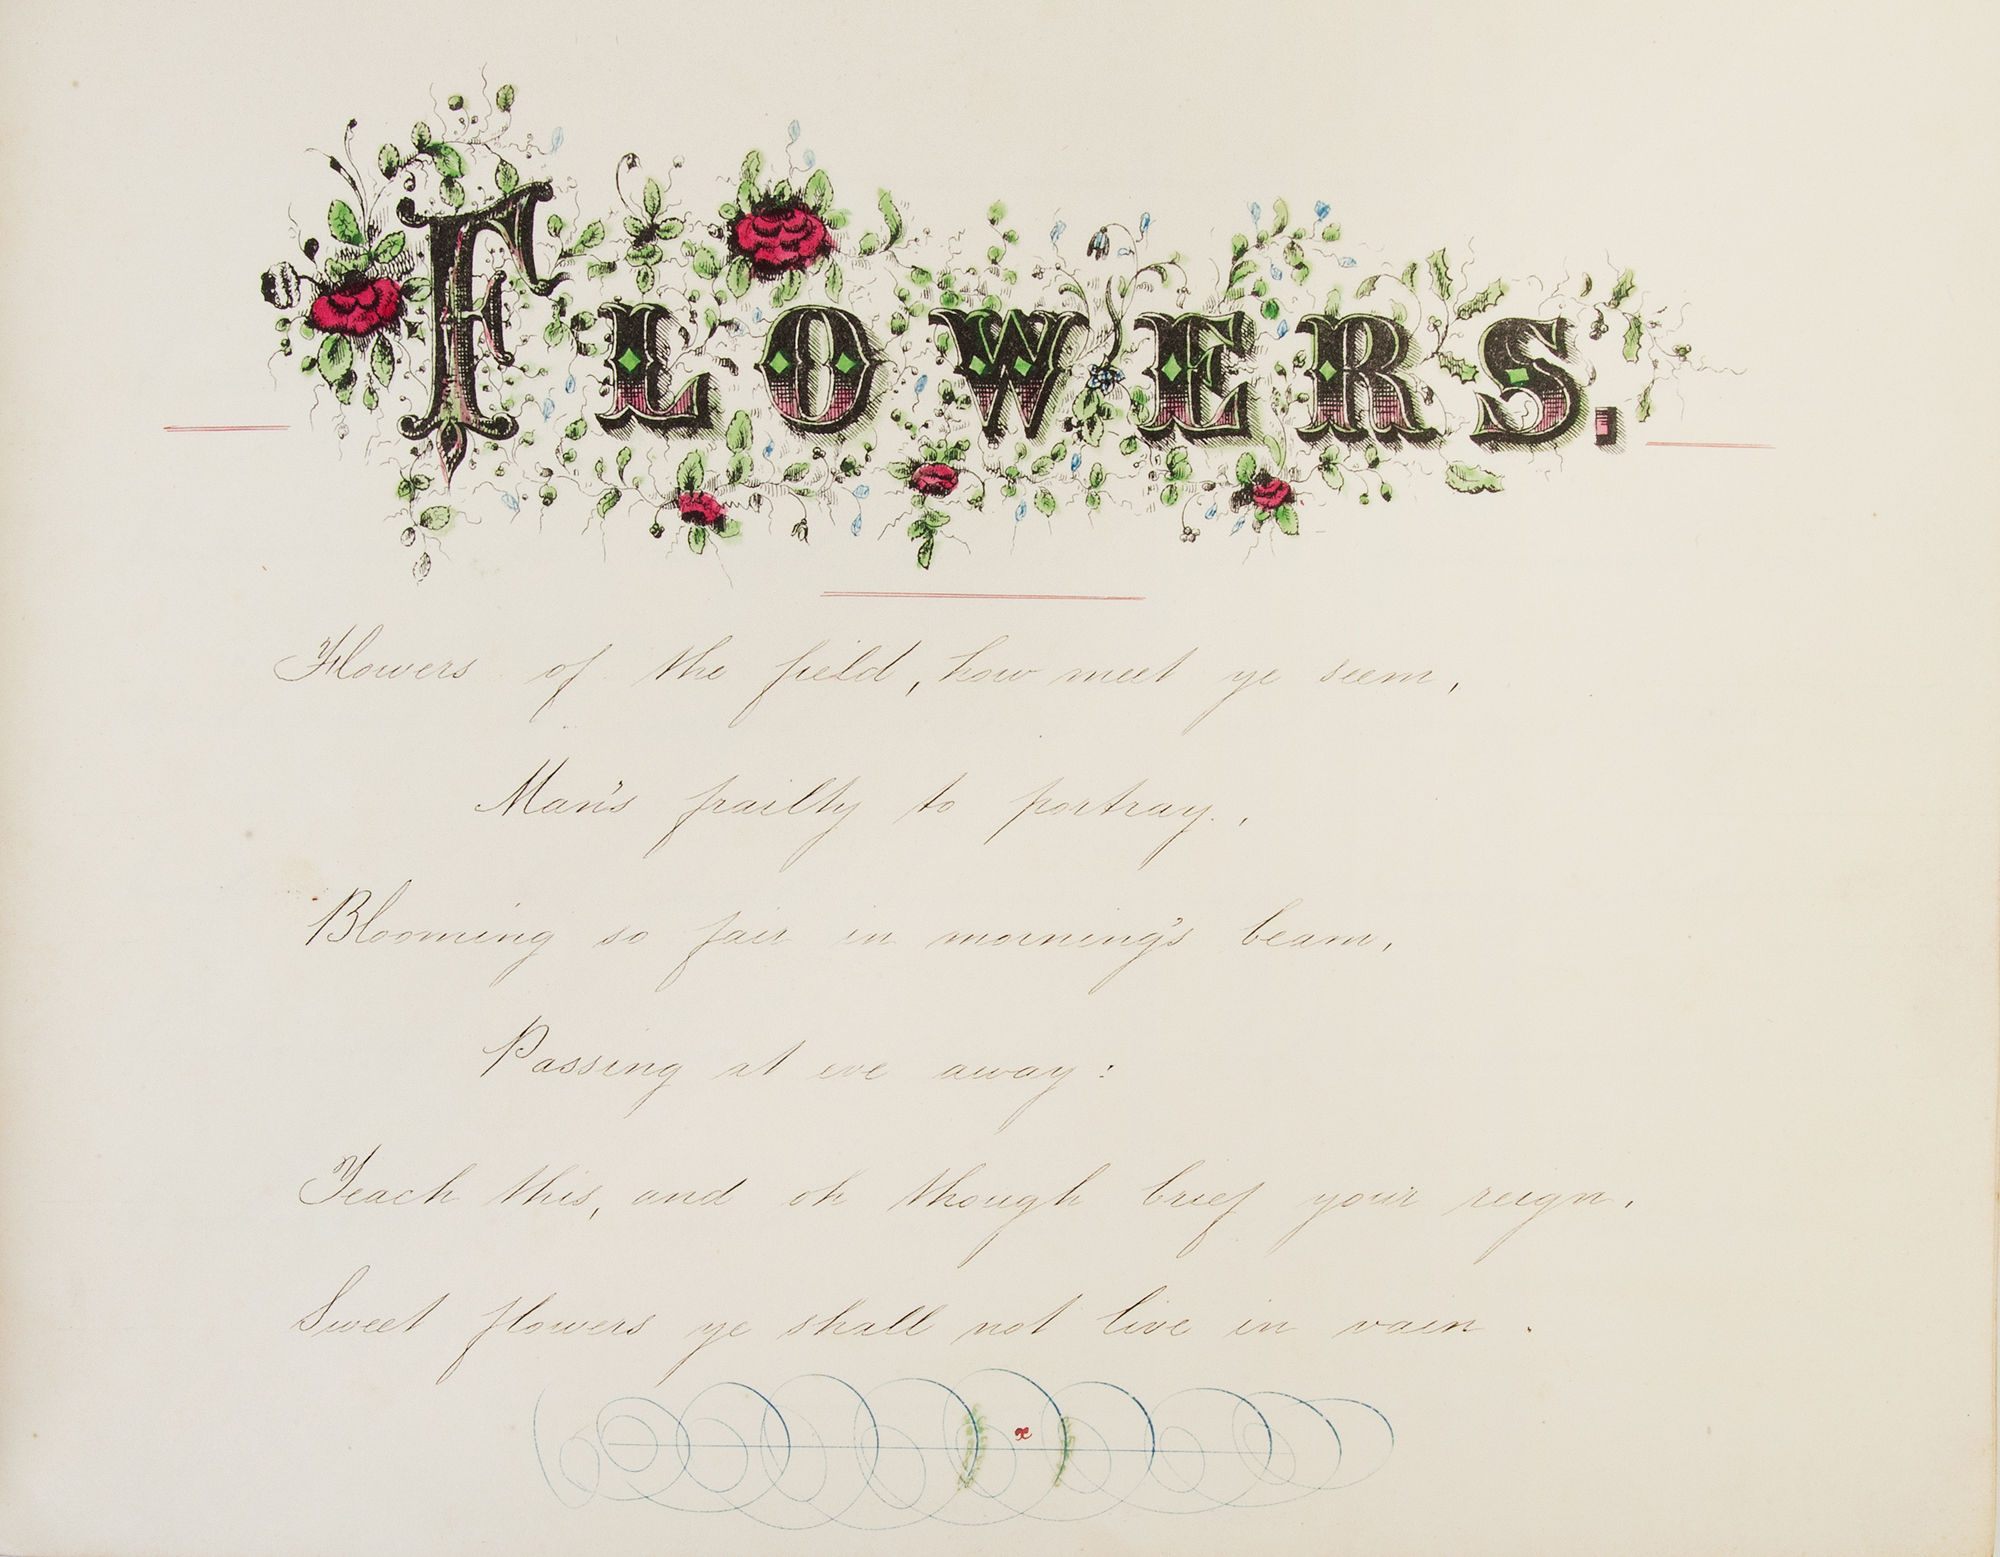 FLOWERS.
Flowers of the field, how meet ye seem,
Man's frailty to portray.,
Blooming so fair in morning's beam,
Passing at eve away:
Teach this, and oh though brief your reign,
Sweet flowers ye shall not live in vain.